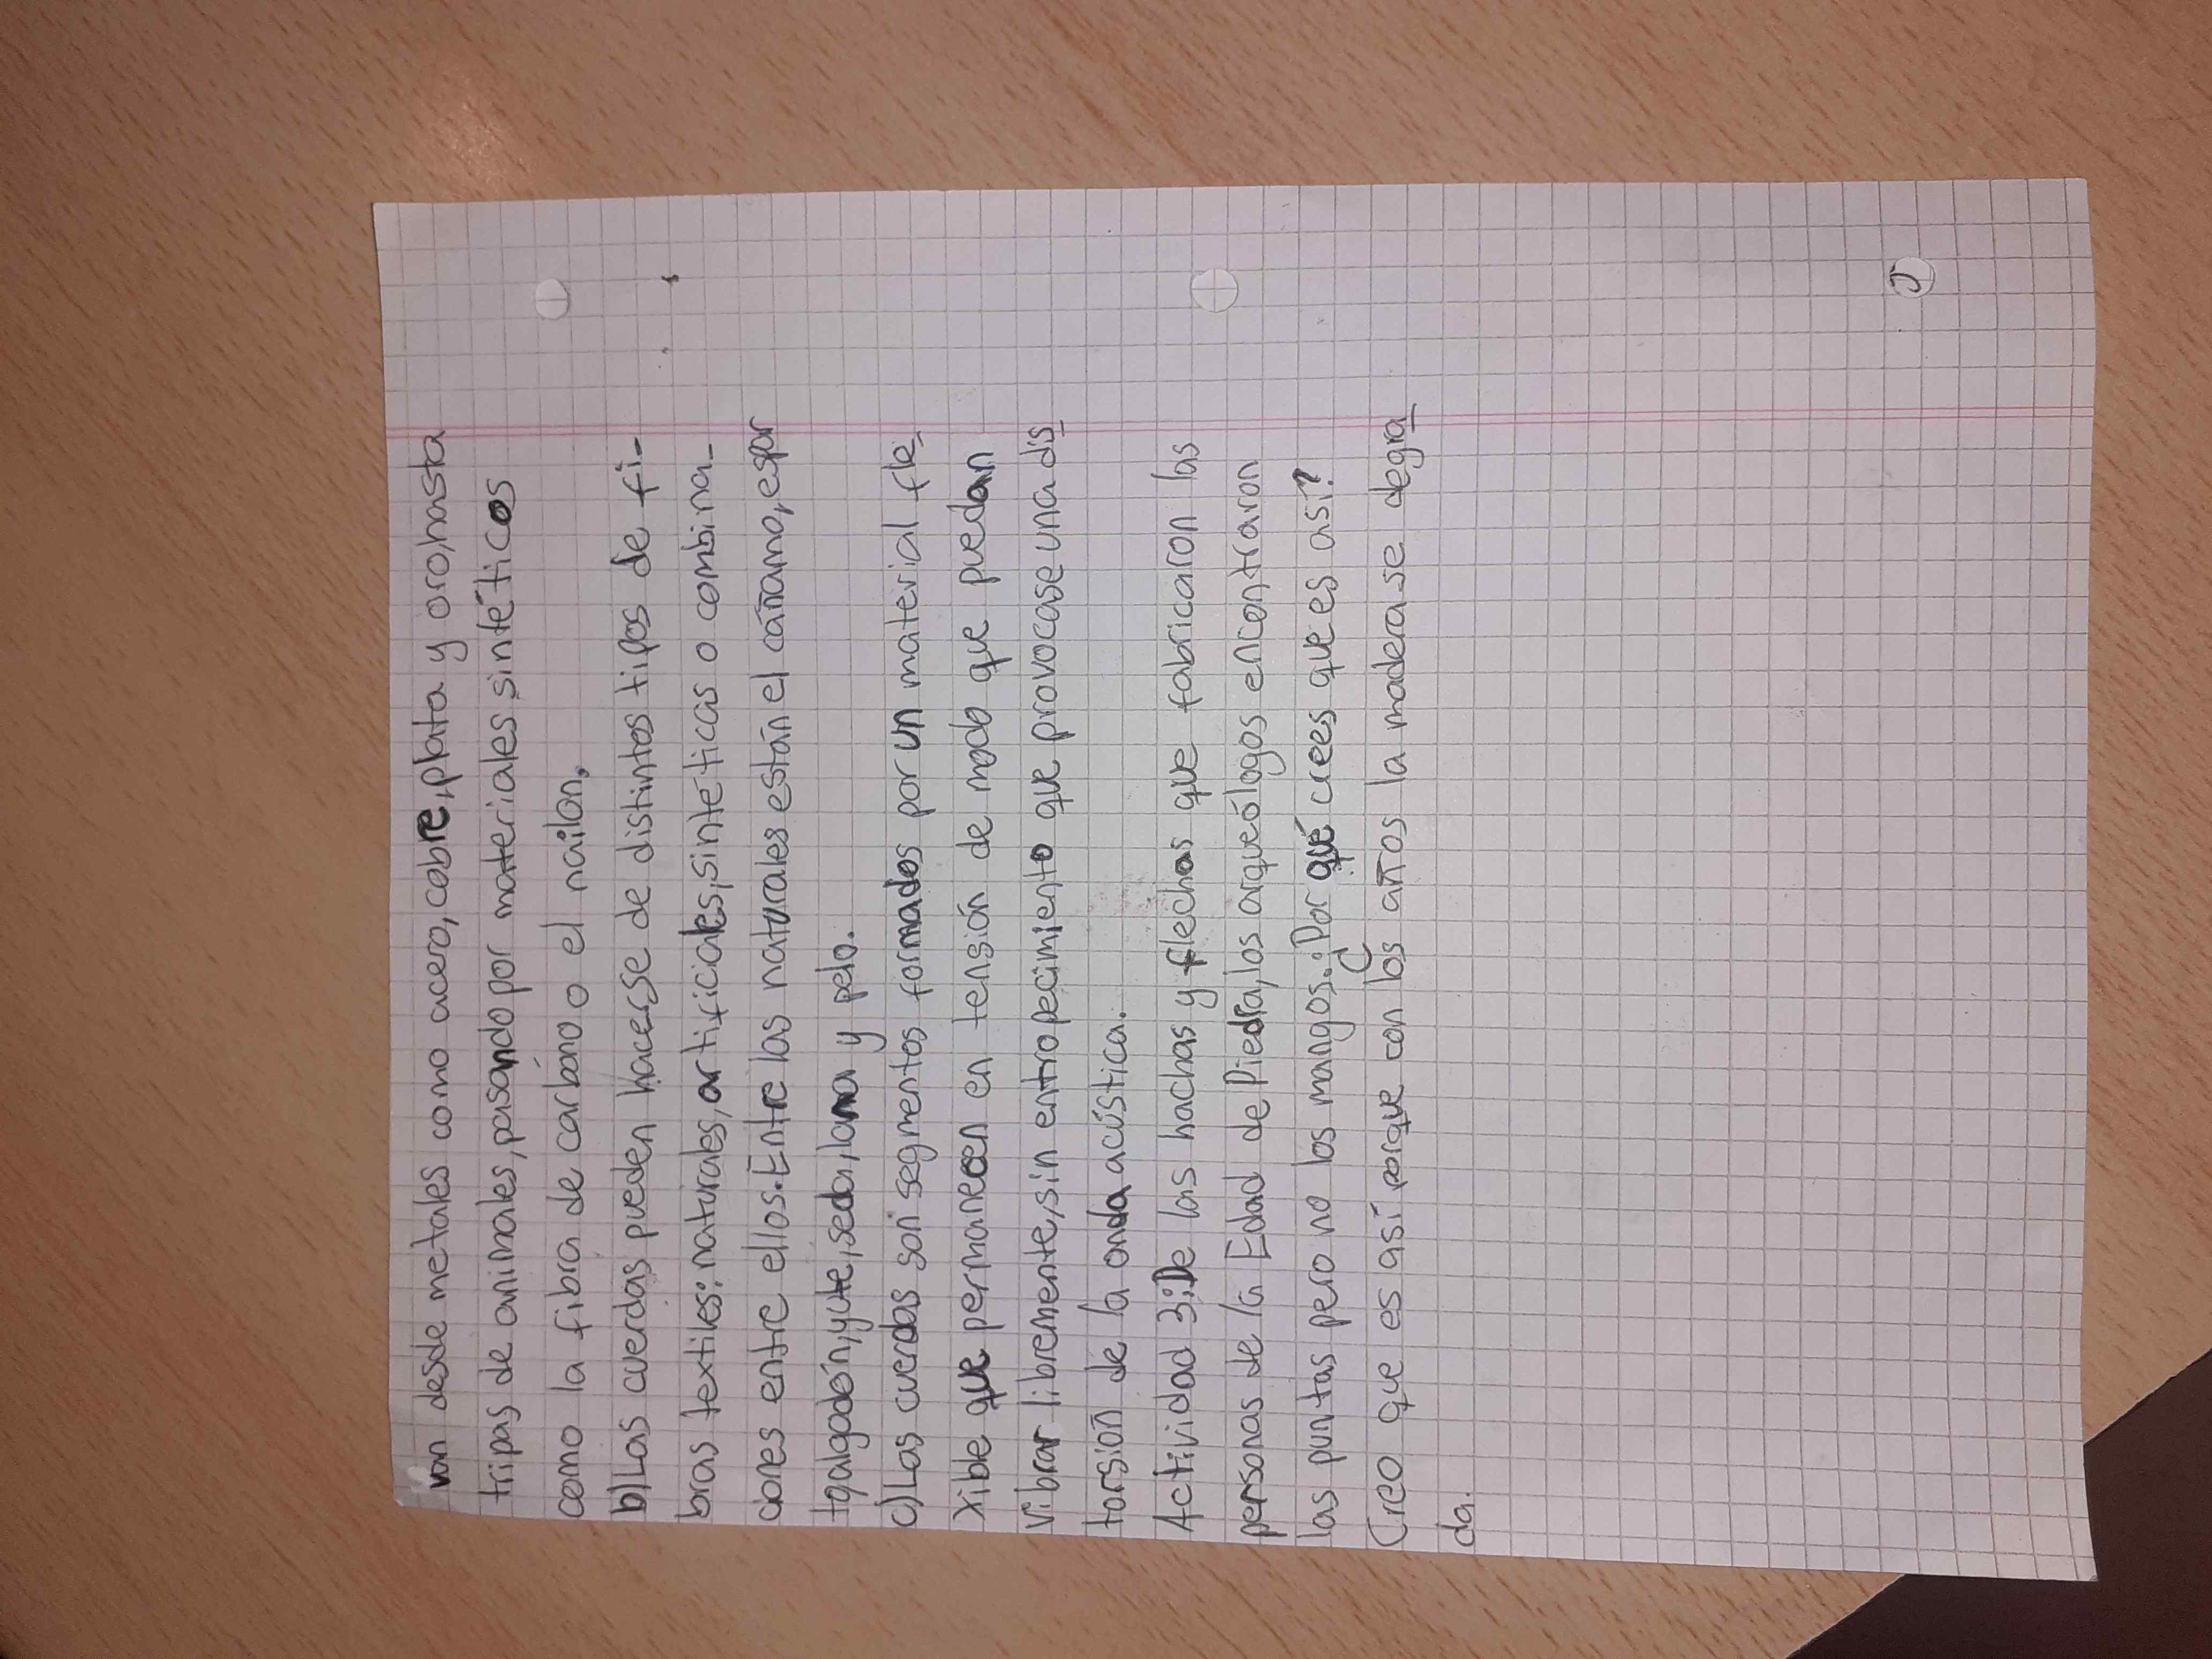 van desde metales como acero, cobre, plata y oro, hasta
tripas de animales, pasando por materiales sintéticos
como la fibra de carbono o el nailon.
b) Las cuerdas pueden hacerse de distintos tipos de fi-
bras textiles: naturales, artificiales, sintéticas o combina-
ciones entre ellos. Entre las naturales están el cáñamo, espar
to, algodón, yute, seda, lana y pelo.
c) Las cuerdas son segmentos formados por un material fle-
xible que permanecen en tensión de modo que puedan
vibrar libremente, sin entropecimiento que provocase una dis-
torsión de la onda acústica.
Actividad 3: De las hachas y flechas que fabricaron las
personas de la Edad de Piedra, los arqueólogos encontraron
las puntas pero no los mangos. ¿Por qué crees que es así?
Creo que es así porque con los años la madera se degra-
da.